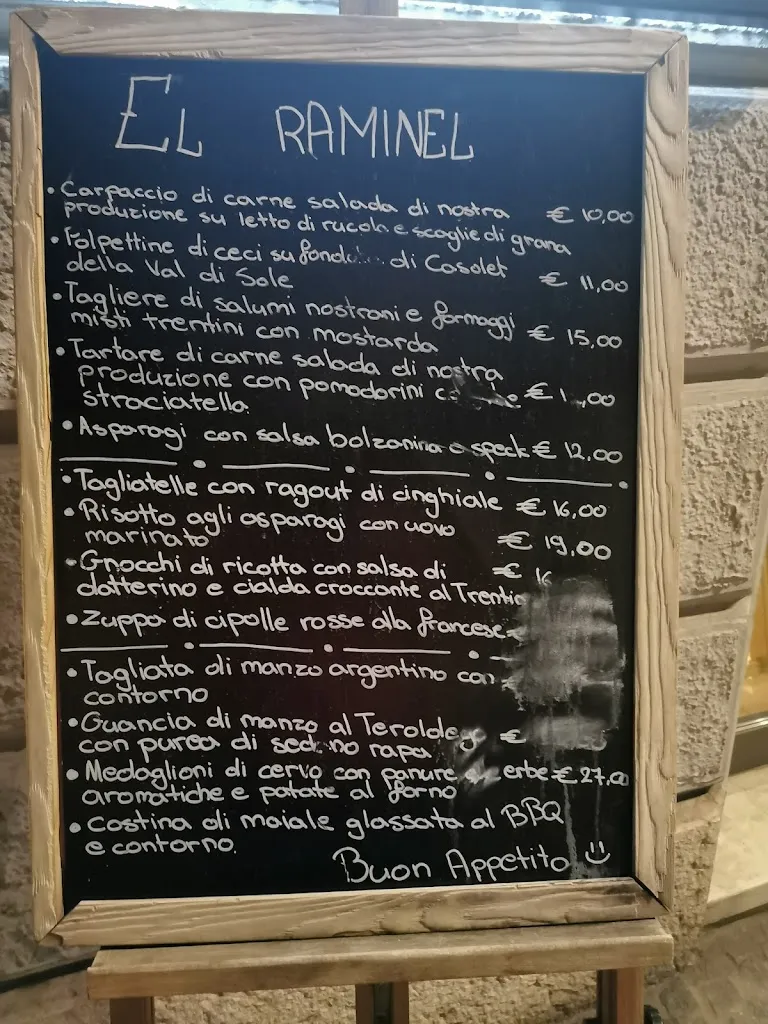 EL RAMINEL
• Carpaccio di carne salada di nostra € 10,00
produzione su letto di rucola e scaglie di grana
• Polpettine di ceci su di Casolet € 11,00
della Val di Sole
• Tagliere di salumi nostrani e formaggi € 15,00
misti trentini con mostarda
• Tartare di carne salada di nostra
produzione con pomodorini €
straciatella
• Asparagi con salsa bolzanina e speck € 12,00
• Tagliatelle con ragout di cinghiale € 16,00
• Risotto agli asparagi con uovo € 19,00
marinato
• Gnocchi di ricotta con salsa di € 16
datterino e cialda croccante al Trentin
• Zuppa di cipolle rosse alla francese
• Tagliata di manzo argentino con
contorno
• Guancia di manzo al €
con purea di rapa
• Medaglioni di cervo con panure erbe € 27,00
aromatiche e patate al forno
• Costina di maiale glassata al BBQ
e contorno.
Buon Appetito